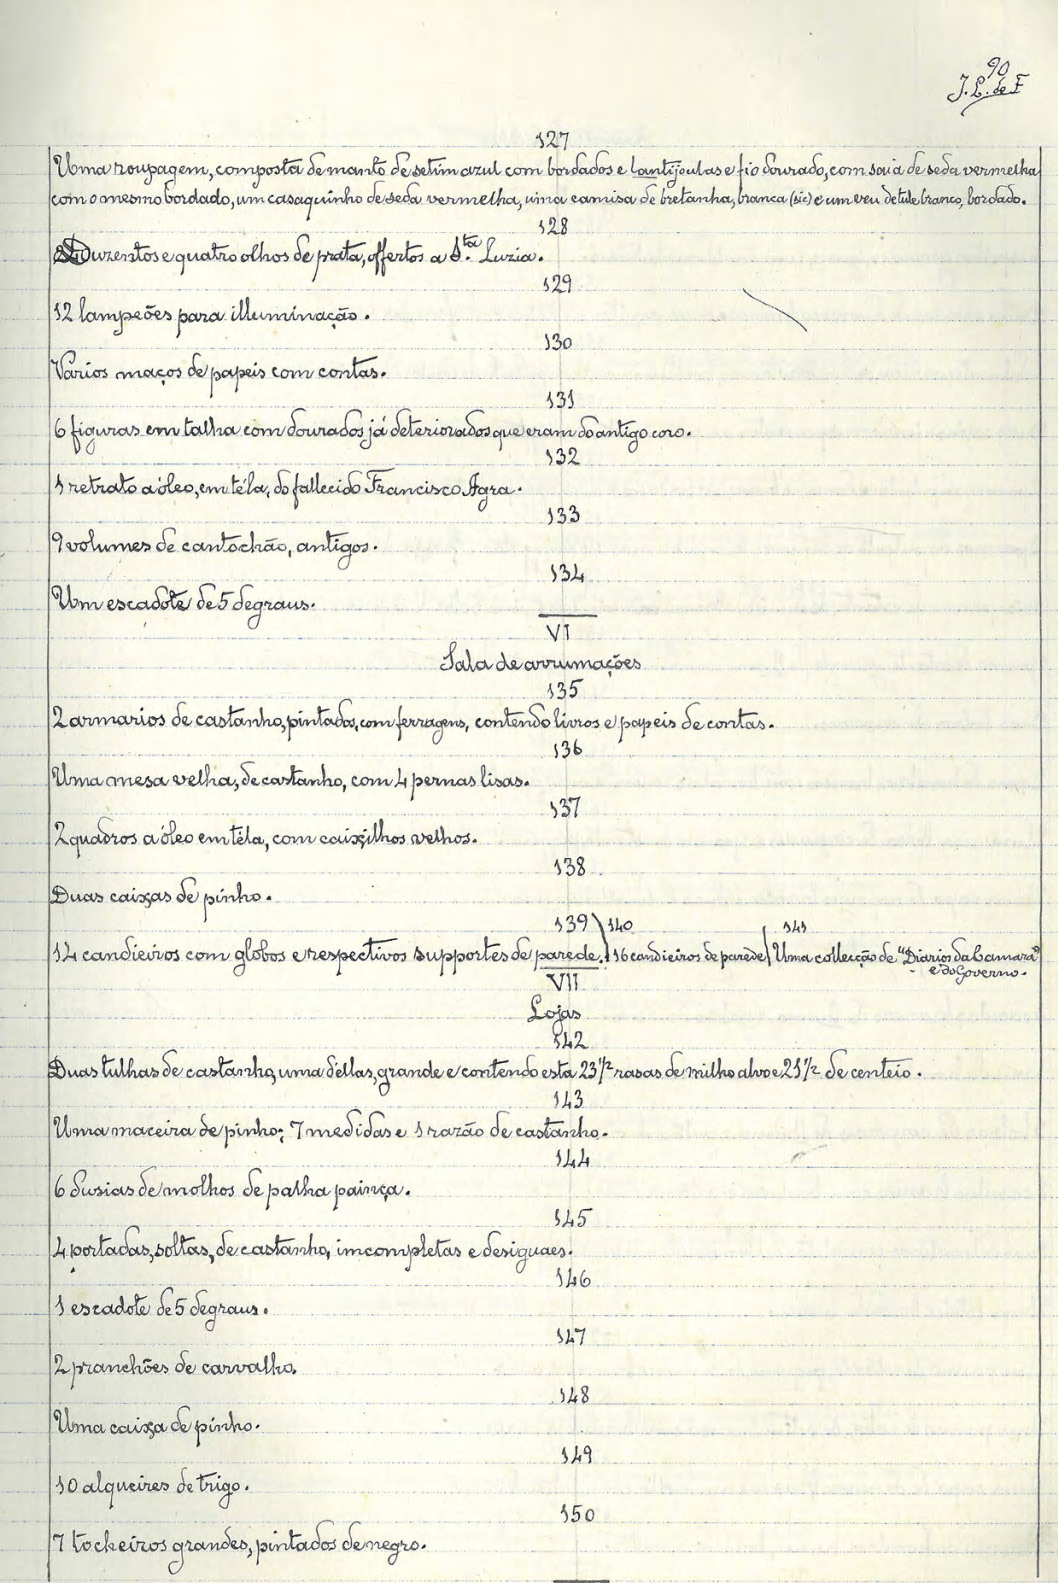 90
J. L. de F
127
Uma roupagem, composta de manto de setim azul com bordados e lantijoulas e fio dourado, com saia de seda vermelha
com o mesmo bordado, um casaquinho de seda vermelha, uma camisa de bretanha, branca (sic) e um veu de tule branco, bordado.
128
Duzentos e quatro olhos de prata, offertos a S.ta Luzia.
129
12 lampeões para illuminação.
130
Varios maços de papeis com contas.
131
6 figuras em talha com dourados já deteriorados que eram do antigo coro.
132
1 retrato a óleo, em téla, do fallecido Francisco Agra.
133
9 volumes de cantochão, antigos.
134
Um escadote de 5 degraus.
VI
Sala de arrumações
135
2 armarios de castanho, pintados, com ferragens, contendo livros e papeis de contas.
136
Uma mesa velha, de castanho, com 4 pernas lisas.
137
2 quadros a óleo em téla, com caixilhos velhos.
138
Duas caixas de pinho.
139 140 141
14 candieiros com globos e respectivos supportes de parede. 16 candieiros de parede Uma collecção de "Diarios da Camara"
e do Governo.
VII
Lojas
142
Duas tulhas de castanho, uma d'ellas, grande e contendo esta 23 1/2 rasas de milho alvo e 21 1/2 de centeio.
143
Uma maceira de pinho; 7 medidas e 1 razão de castanho.
144
6 dusias de molhos de palha painça.
145
4 portadas, soltas, de castanho, imcompletas e desiguaes.
146
1 escadote de 5 degraus.
147
2 pranchões de carvalho.
148
Uma caixa de pinho.
149
10 alqueires de trigo.
150
7 tocheiros grandes, pintados de negro.